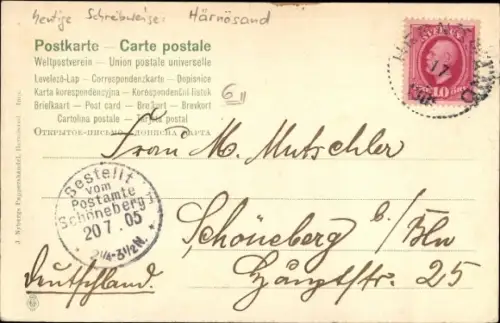 heutige Schreibweise: Härnösand
Postkarte – Carte postale
Weltpostverein – Union postale universelle
Levelezó-Lap – Correspondenzkarte – Dopisnice
Karta korespondencyjna – Korespondenční listek
Briefkaart – Post card – Brefkort – Brevkort
Cartolina postale – Tarjeta postal
ОТКРЫТОЕ-ПИСЬМО
6
SVERIGE
10 ÖRE
17
Frau M. Mutschler
Bestellt
vom
Postamte
Schöneberg 1
20 7. 05
2¼-3½N.
Schöneberg b/Bln
Hauptstr. 25
Deutschland.